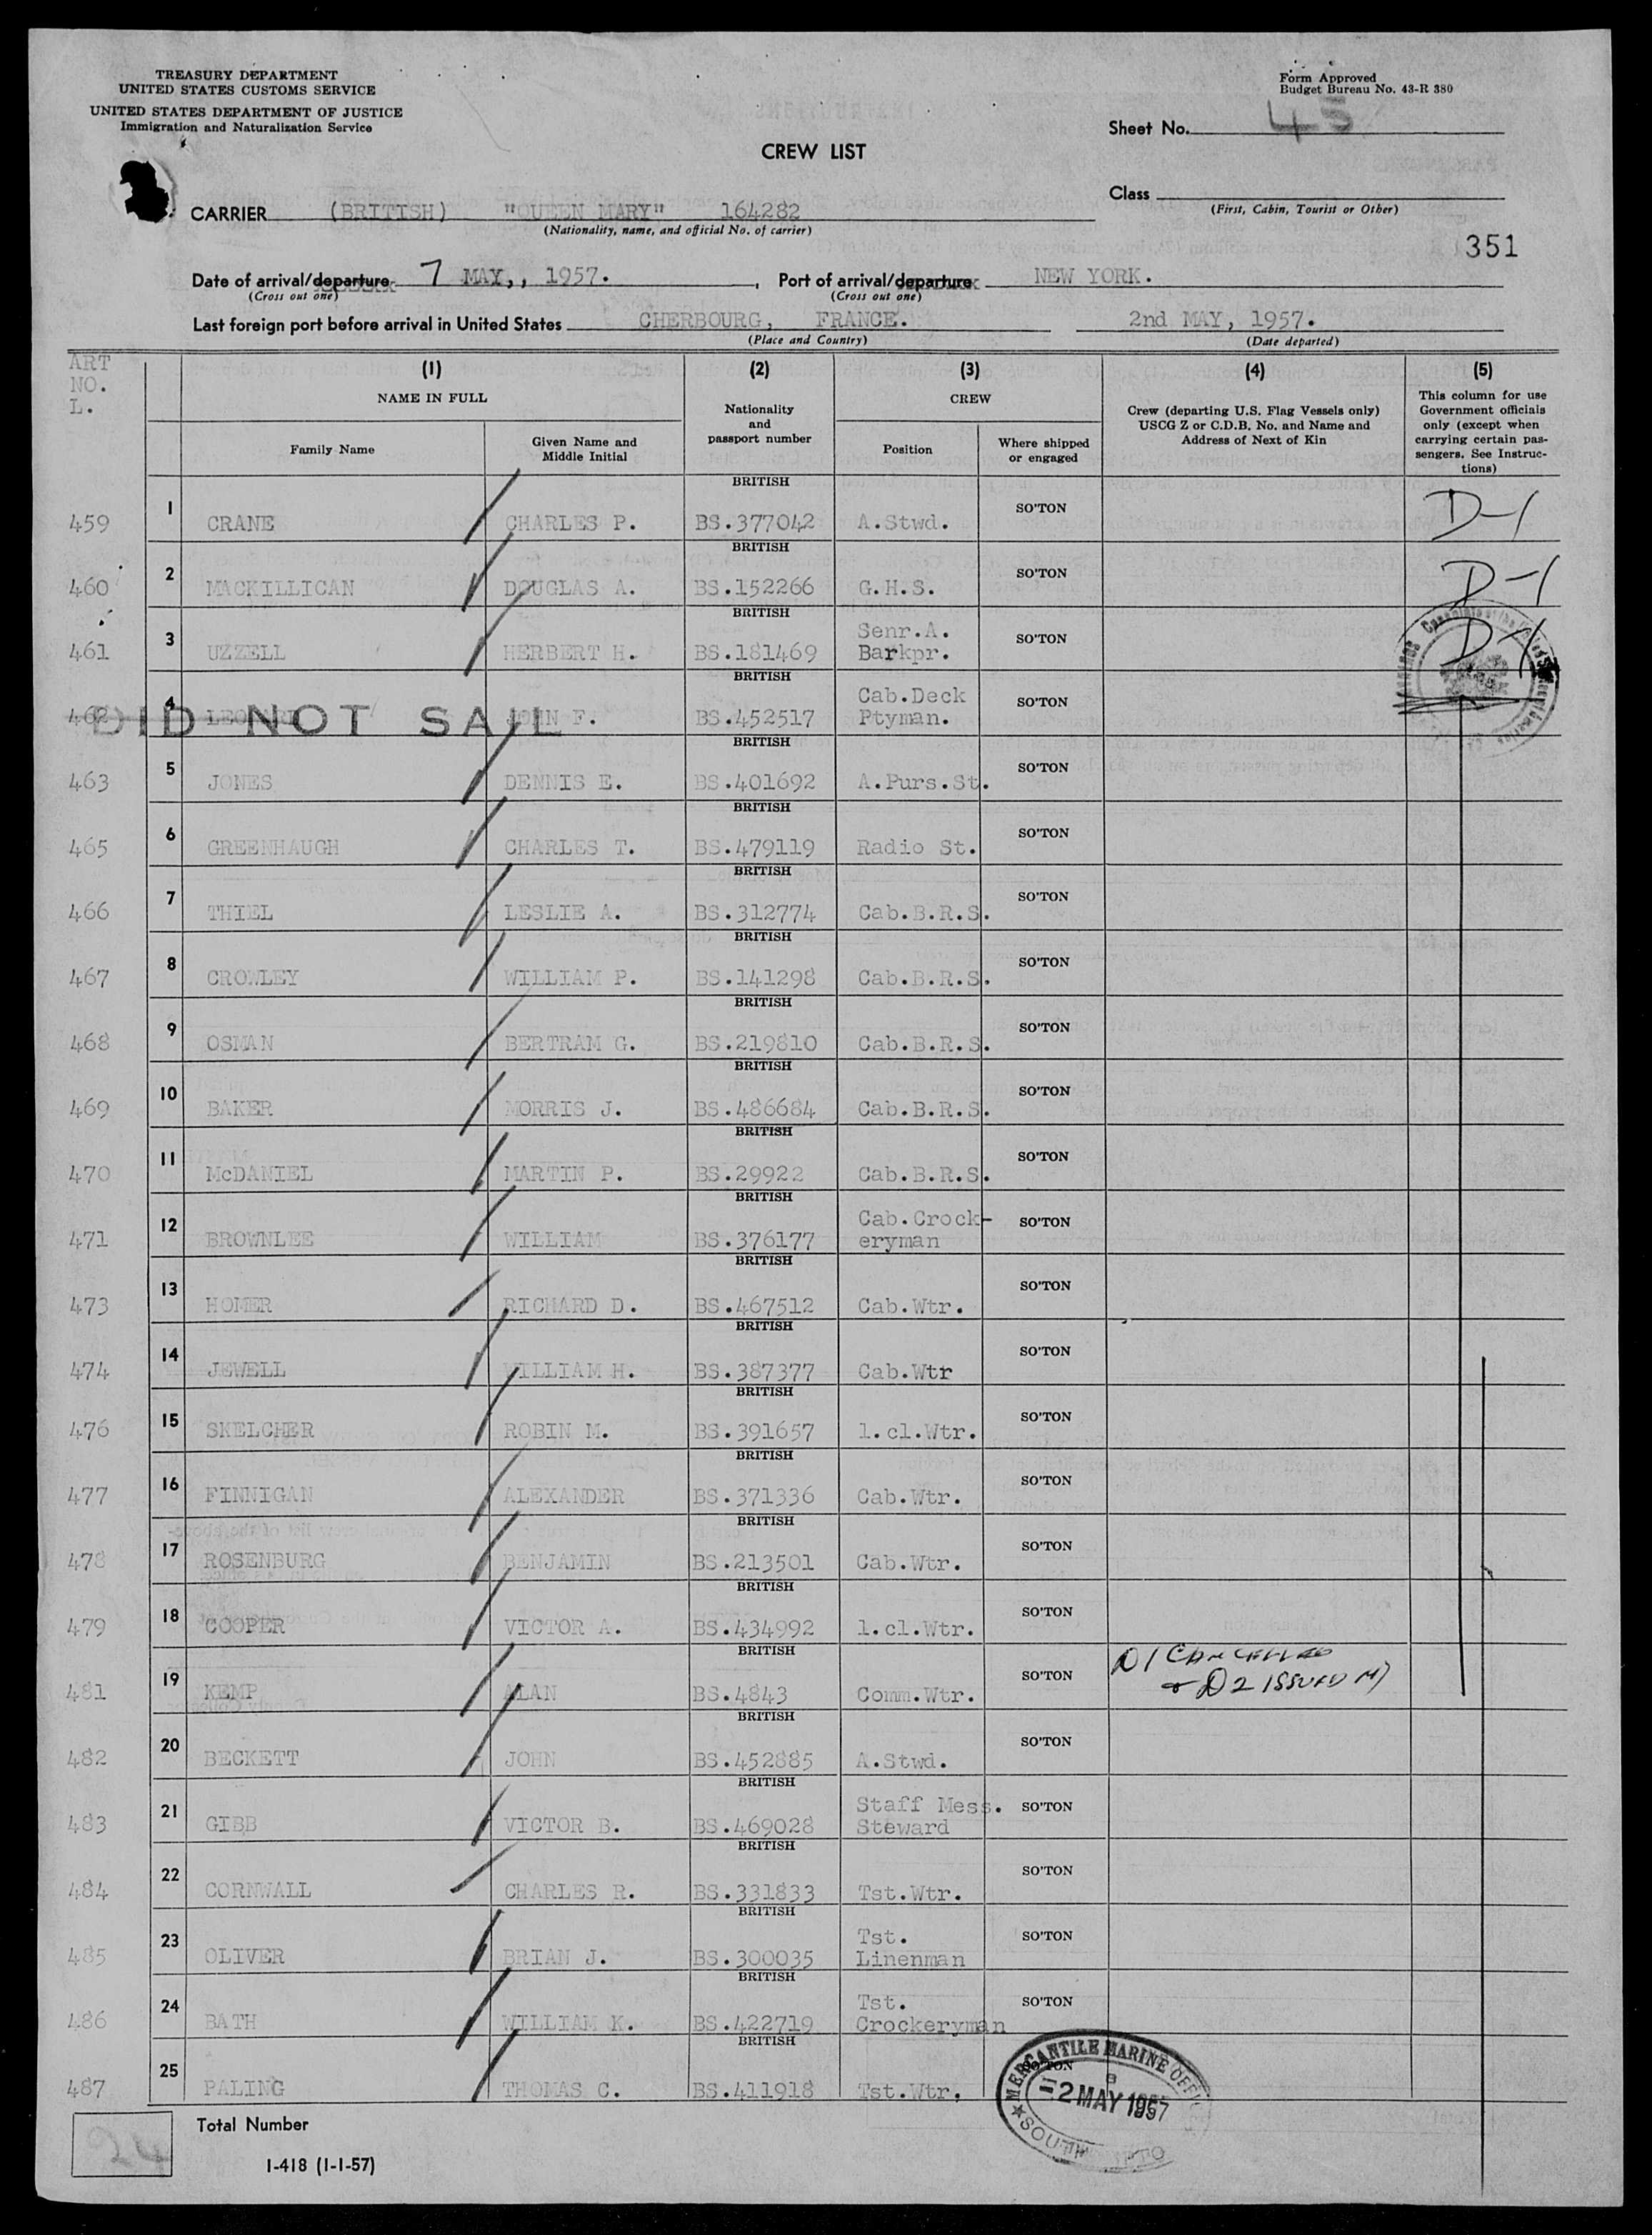 TREASURY DEPARTMENT
UNITED STATES CUSTOMS SERVICE
UNITED STATES DEPARTMENT OF JUSTICE
Immigration and Naturalization Service
Form Approved
Budget Bureau No. 43-R 380
Sheet No. 45
CREW LIST
Class
(First, Cabin, Tourist or Other)
CARRIER (BRITISH) "QUEEN MARY" 164282
(Nationality, name, and official No. of carrier)
351
Date of arrival/departure 7 MAY,, 1957. , Port of arrival/departure NEW YORK.
(Cross out one) (Cross out one)
Last foreign port before arrival in United States CHERBOURG, FRANCE. 2nd MAY, 1957.
(Place and Country) (Date departed)
ART
NO.
L.
(1) (2) (3) (4) (5)
NAME IN FULL
Family Name
Given Name and
Middle Initial
Nationality
and
passport number
CREW
Position
Where shipped
or engaged
Crew (departing U.S. Flag Vessels only)
USCG Z or C.D.B. No. and Name and
Address of Next of Kin
This column for use
Government officials
only (except when
carrying certain pas-
sengers. See Instruc-
tions)
BRITISH
459 1 CRANE CHARLES P. BS.377042 A.Stwd. SO'TON D-1
BRITISH
460 2 MACKILLICAN DOUGLAS A. BS.152266 G.H.S. SO'TON D-1
BRITISH
Senr.A.
461 3 UZZELL HERBERT H. BS.181469 Barkpr. SO'TON D-1
BRITISH
Cab.Deck
462 4 JOHN F. BS.452517 Ptyman. SO'TON
DID NOT SAIL
BRITISH
463 5 JONES DENNIS E. BS.401692 A.Purs.St. SO'TON
BRITISH
465 6 GREENHAUGH CHARLES T. BS.479119 Radio St. SO'TON
BRITISH
466 7 THIEL LESLIE A. BS.312774 Cab.B.R.S. SO'TON
BRITISH
467 8 CROWLEY WILLIAM P. BS.141298 Cab.B.R.S. SO'TON
BRITISH
468 9 OSMAN BERTRAM G. BS.219810 Cab.B.R.S. SO'TON
BRITISH
469 10 BAKER MORRIS J. BS.486684 Cab.B.R.S. SO'TON
BRITISH
470 11 McDANIEL MARTIN P. BS.29922 Cab.B.R.S. SO'TON
BRITISH
Cab.Crock-
471 12 BROWNLEE WILLIAM BS.376177 eryman SO'TON
BRITISH
473 13 HOMER RICHARD D. BS.467512 Cab.Wtr. SO'TON
BRITISH
474 14 JEWELL WILLIAM H. BS.387377 Cab.Wtr SO'TON
BRITISH
476 15 SKELCHER ROBIN M. BS.391657 1.cl.Wtr. SO'TON
BRITISH
477 16 FINNIGAN ALEXANDER BS.371336 Cab.Wtr. SO'TON
BRITISH
478 17 ROSENBURG BENJAMIN BS.213501 Cab.Wtr. SO'TON
BRITISH
479 18 COOPER VICTOR A. BS.434992 1.cl.Wtr. SO'TON
BRITISH
D1 CANCELLED
481 19 KEMP ALAN BS.4843 Comm.Wtr. SO'TON
D2 ISSUED
BRITISH
482 20 BECKETT JOHN BS.452885 A.Stwd. SO'TON
BRITISH
Staff Mess.
483 21 GIBB VICTOR B. BS.469028 Steward SO'TON
BRITISH
484 22 CORNWALL CHARLES R. BS.331833 Tst.Wtr. SO'TON
BRITISH
Tst.
485 23 OLIVER BRIAN J. BS.300035 Linenman SO'TON
BRITISH
Tst.
486 24 BATH WILLIAM K. BS.422719 Crockeryman SO'TON
BRITISH
487 25 PALING THOMAS C. BS.411918 Tst.Wtr. SO'TON
MERCANTILE MARINE OFFICE
2 MAY 1957
24
Total Number
I-418 (1-1-57)